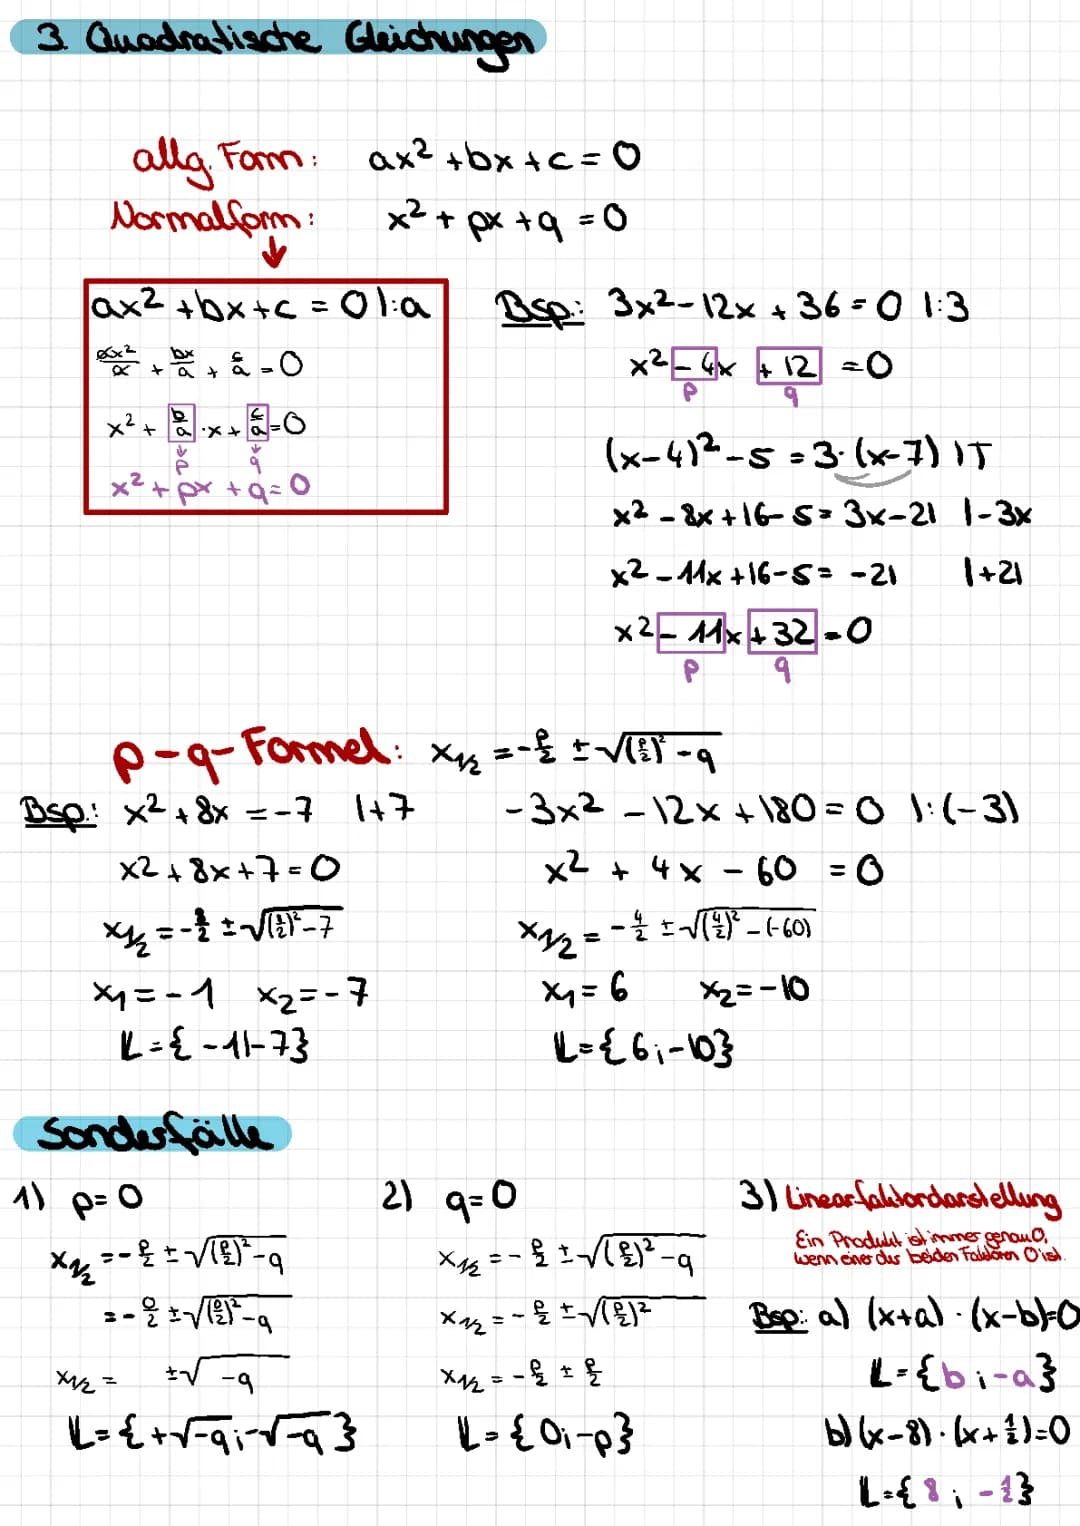 3. Quadratische Gleichungen
allg. Form: ax² + bx + c = 0
Normalform: x² + px + q = 0
ax² + bx + c = 0 |:a
ax²/a + bx/a + c/a = 0
x² + b/a · x + c/a = 0
p q
x² + px + q = 0
Bsp.: 3x² - 12x + 36 = 0 |:3
x² - 4x + 12 = 0
p q
(x-4)² - 5 = 3·(x-7) |T
x² - 8x + 16 - 5 = 3x - 21 |-3x
x² - 11x + 16 - 5 = -21 |+21
x² - 11x + 32 = 0
p q
p-q-Formel: x1/2 = -p/2 ± √((p/2)² - q)
Bsp.: x² + 8x = -7 |+7
x² + 8x + 7 = 0
x1/2 = -8/2 ± √((8/2)² - 7)
x₁ = -1 x₂ = -7
𝕃 = {-1|-7}
-3x² - 12x + 180 = 0 |:(-3)
x² + 4x - 60 = 0
x1/2 = -4/2 ± √((4/2)² - (-60))
x₁ = 6 x₂ = -10
𝕃 = {6;-10}
Sonderfälle
1) p = 0
x1/2 = -p/2 ± √((p/2)² - q)
= -0/2 ± √((0/2)² - q)
x1/2 = ±√-q
𝕃 = {+√-q;-√-q}
2) q = 0
x1/2 = -p/2 ± √((p/2)² - q)
x1/2 = -p/2 ± √((p/2)²
x1/2 = -p/2 ± p/2
𝕃 = {0;-p}
3) Linearfaktordarstellung
Ein Produkt ist immer genau 0,
wenn einer der beiden Faktoren 0 ist.
Bsp.: a) (x+a) · (x-b)=0
𝕃 = {b;-a}
b) (x-8) · (x+1/2)=0
𝕃 = {8;-1/2}